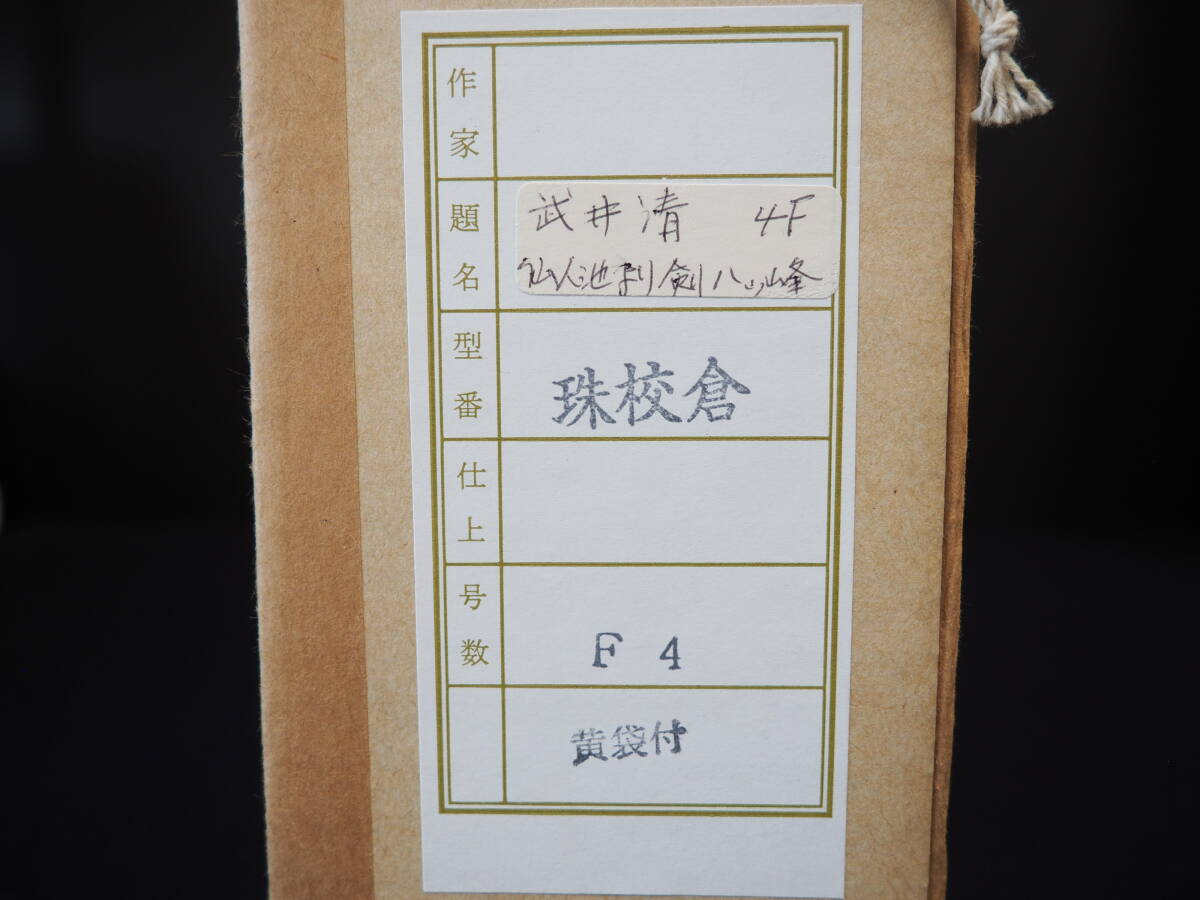 作家
題名
武井清 4F
仙人池より剣八ッ峰
型番
珠校倉
仕上
号数
F 4
黄袋付